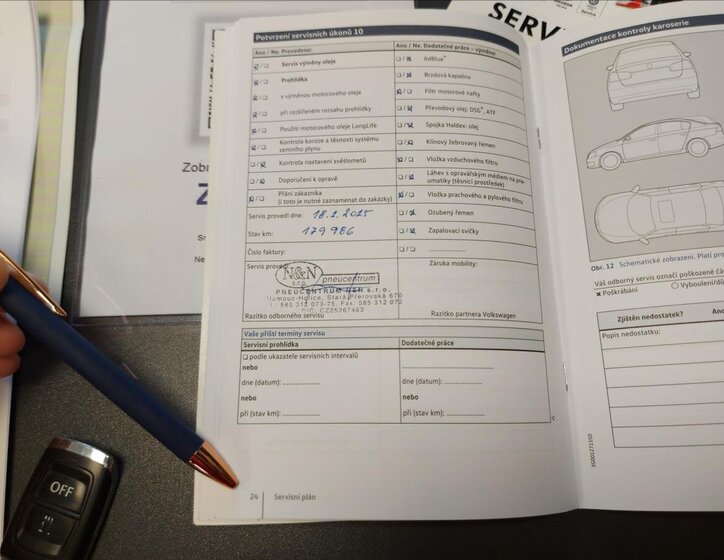 SERV
Service
Zobr
Z
Potvrzení servisních úkonů 10
Ano / Ne. Provedeno:
Servis výměny oleje
Prohlídka
s výměnou motorového oleje
při rozšířeném rozsahu prohlídky
Použití motorového oleje LongLife
Kontrola koroze a těsnosti systému
zemního plynu
Kontrola nastavení světlometů
Doporučení k opravě
Přání zákazníka
(i toto je nutné zaznamenat do zakázky)
Servis provedl dne: 18.2.2025
Stav km: 179 986
Číslo faktury:
Servis provedl
N&N
s.r.o.
pneucentrum
PNEUCENTRUM N&N s.r.o.
lomouc-Holice, Stará Přerovská 670
585 312 073-75, Fax: 585 312 072
DIČ: CZ25367463
Razítko odborného servisu
Ano / Ne. Dodatečné práce – výměna:
AdBlue®
Brzdová kapalina
Filtr motorové nafty
Převodový olej: DSG®, ATF
Spojka Haldex: olej
Klínový žebrovaný řemen
Vložka vzduchového filtru
Láhev s opravářským médiem na pne-
umatiky (těsnicí prostředek)
Vložka prachového a pylového filtru
Ozubený řemen
Zapalovací svíčky
Záruka mobility:
Razítko partnera Volkswagen
Vaše příští termíny servisu
Servisní prohlídka
Dodatečné práce
podle ukazatele servisních intervalů
nebo
dne (datum): ...............
nebo
při (stav km): ...............
dne (datum): ...............
nebo
při (stav km): ...............
24
Servisní plán
Dokumentace kontroly karoserie
Obr. 12 Schematické zobrazení. Platí pro
Váš odborný servis označí poškozené čá
× Poškrábání
Vybouleni/dů
Zjištěn nedostatek?
Ano
Popis nedostatku:
3G0012715SD
OFF